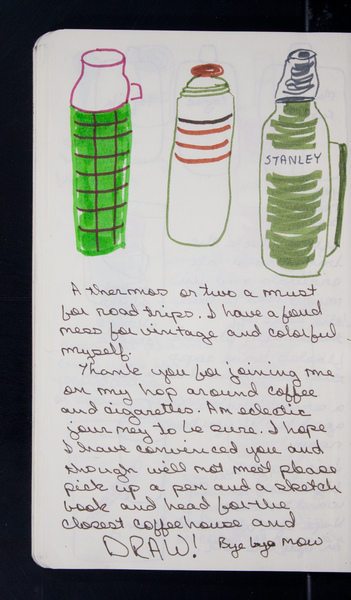 STANLEY
A thermos or two a must
for road trips. I have a fond
ness for vintage and colorful
myself.
Thank you for joining me
on my hop around coffee
and cigarettes. An eclectic
journey to be sure. I hope
I have convinced you and
though we'll not meet please
pick up a pen and a sketch
book and head for the
closest coffeehouse and
DRAW! Bye bye now